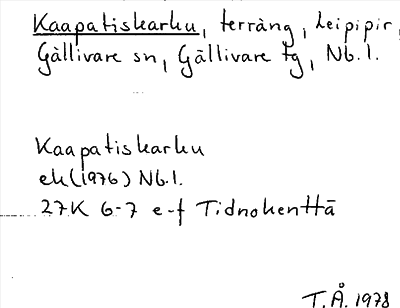 Kaapatiskarku, terräng, Leipipir,
Gällivare sn, Gällivare tg, Nb.l.
Kaapatiskarku
ek(1976) Nb.l.
27K 6-7 e-f Tidnokenttä
T.Å. 1978